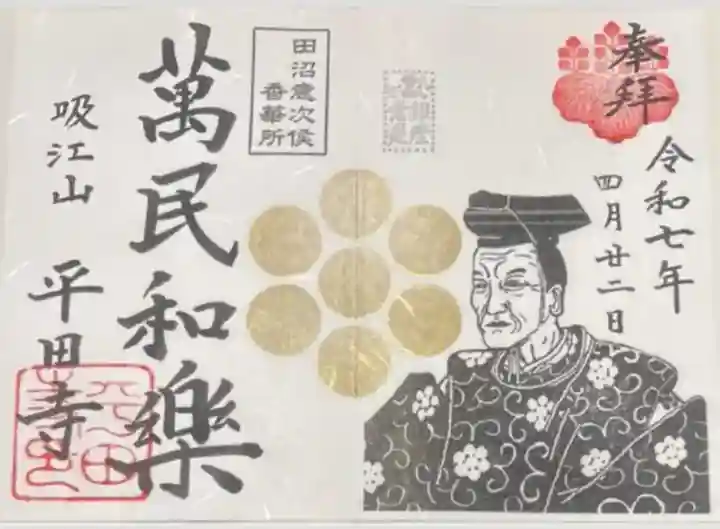 奉拝
令和七年
四月廿二日
田沼意次侯
香華所
萬民和樂
吸江山
平田寺